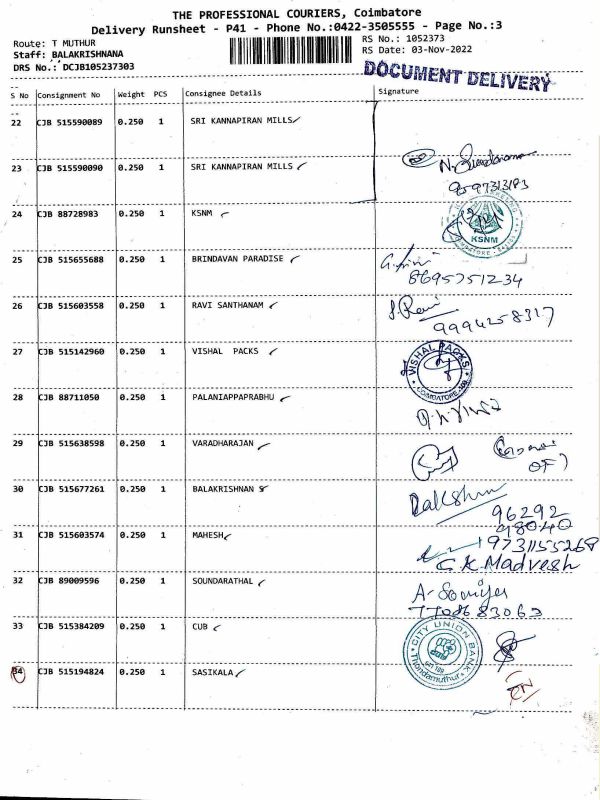 THE PROFESSIONAL COURIERS, Coimbatore
Delivery Runsheet - P41 - Phone No.:0422-3505555 - Page No.:3
Route: T MUTHUR
RS No.: 1052373
Staff: BALAKRISHNANA
RS Date: 03-Nov-2022
DRS No.: DCJB105237303
DOCUMENT DELIVERY
S No Consignment No Weight PCS Consignee Details Signature
22 CJB 515590089 0.250 1 SRI KANNAPIRAN MILLS
23 CJB 515590090 0.250 1 SRI KANNAPIRAN MILLS
9597313183
24 CJB 88728983 0.250 1 KSNM
KSNM
25 CJB 515655688 0.250 1 BRINDAVAN PARADISE
8695751234
26 CJB 515603558 0.250 1 RAVI SANTHANAM
S. Ravi
9994258317
27 CJB 515142960 0.250 1 VISHAL PACKS
VISHAL PACKS
COIMBATORE
28 CJB 88711050 0.250 1 PALANIAPPAPRABHU
29 CJB 515638598 0.250 1 VARADHARAJAN
30 CJB 515677261 0.250 1 BALAKRISHNAN S
96292
98040
31 CJB 515603574 0.250 1 MAHESH
9731155268
C K Madvesh
32 CJB 89009596 0.250 1 SOUNDARATHAL
7708683063
33 CJB 515384209 0.250 1 CUB
CITY UNION BANK
Thondamuthur
34 CJB 515194824 0.250 1 SASIKALA